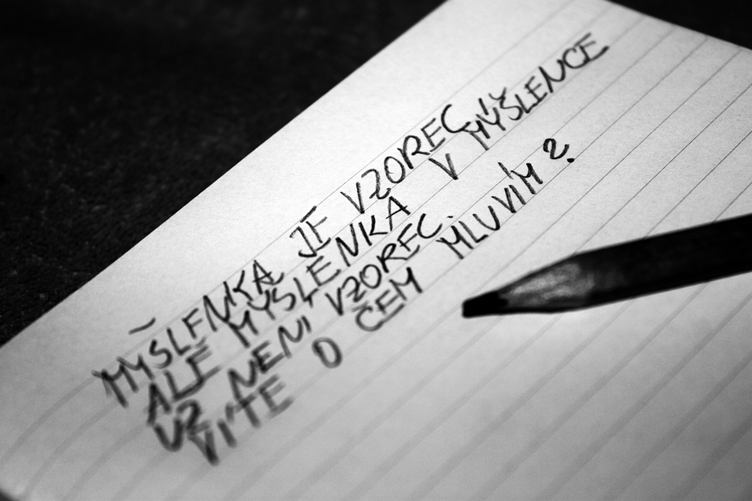 MYŠLENKA JE VZOREC,
ALE MYŠLENKA V MYŠLENCE
UŽ NENÍ VZOREC.
VÍTE O ČEM MLUVÍM?